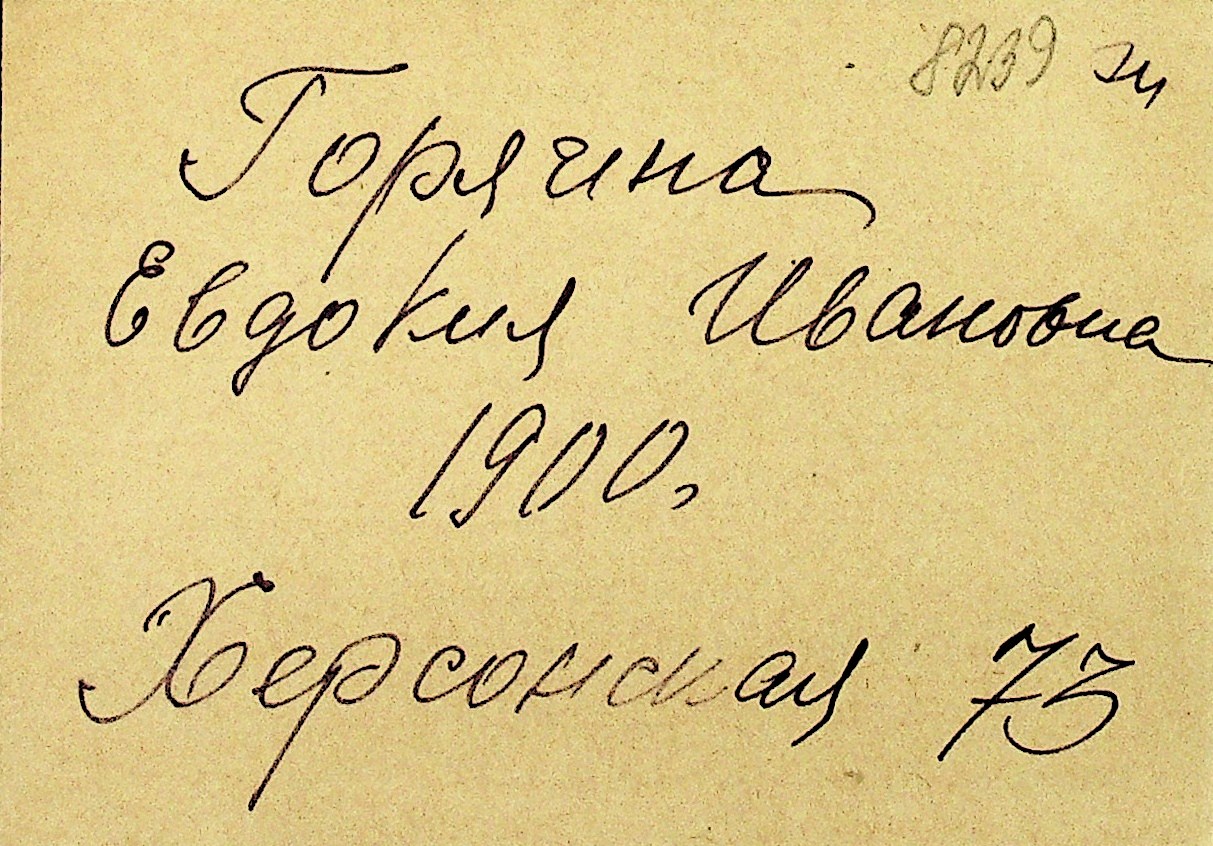 8239
Горячина
Евдокия Ивановна
1900,
Херсонская 73